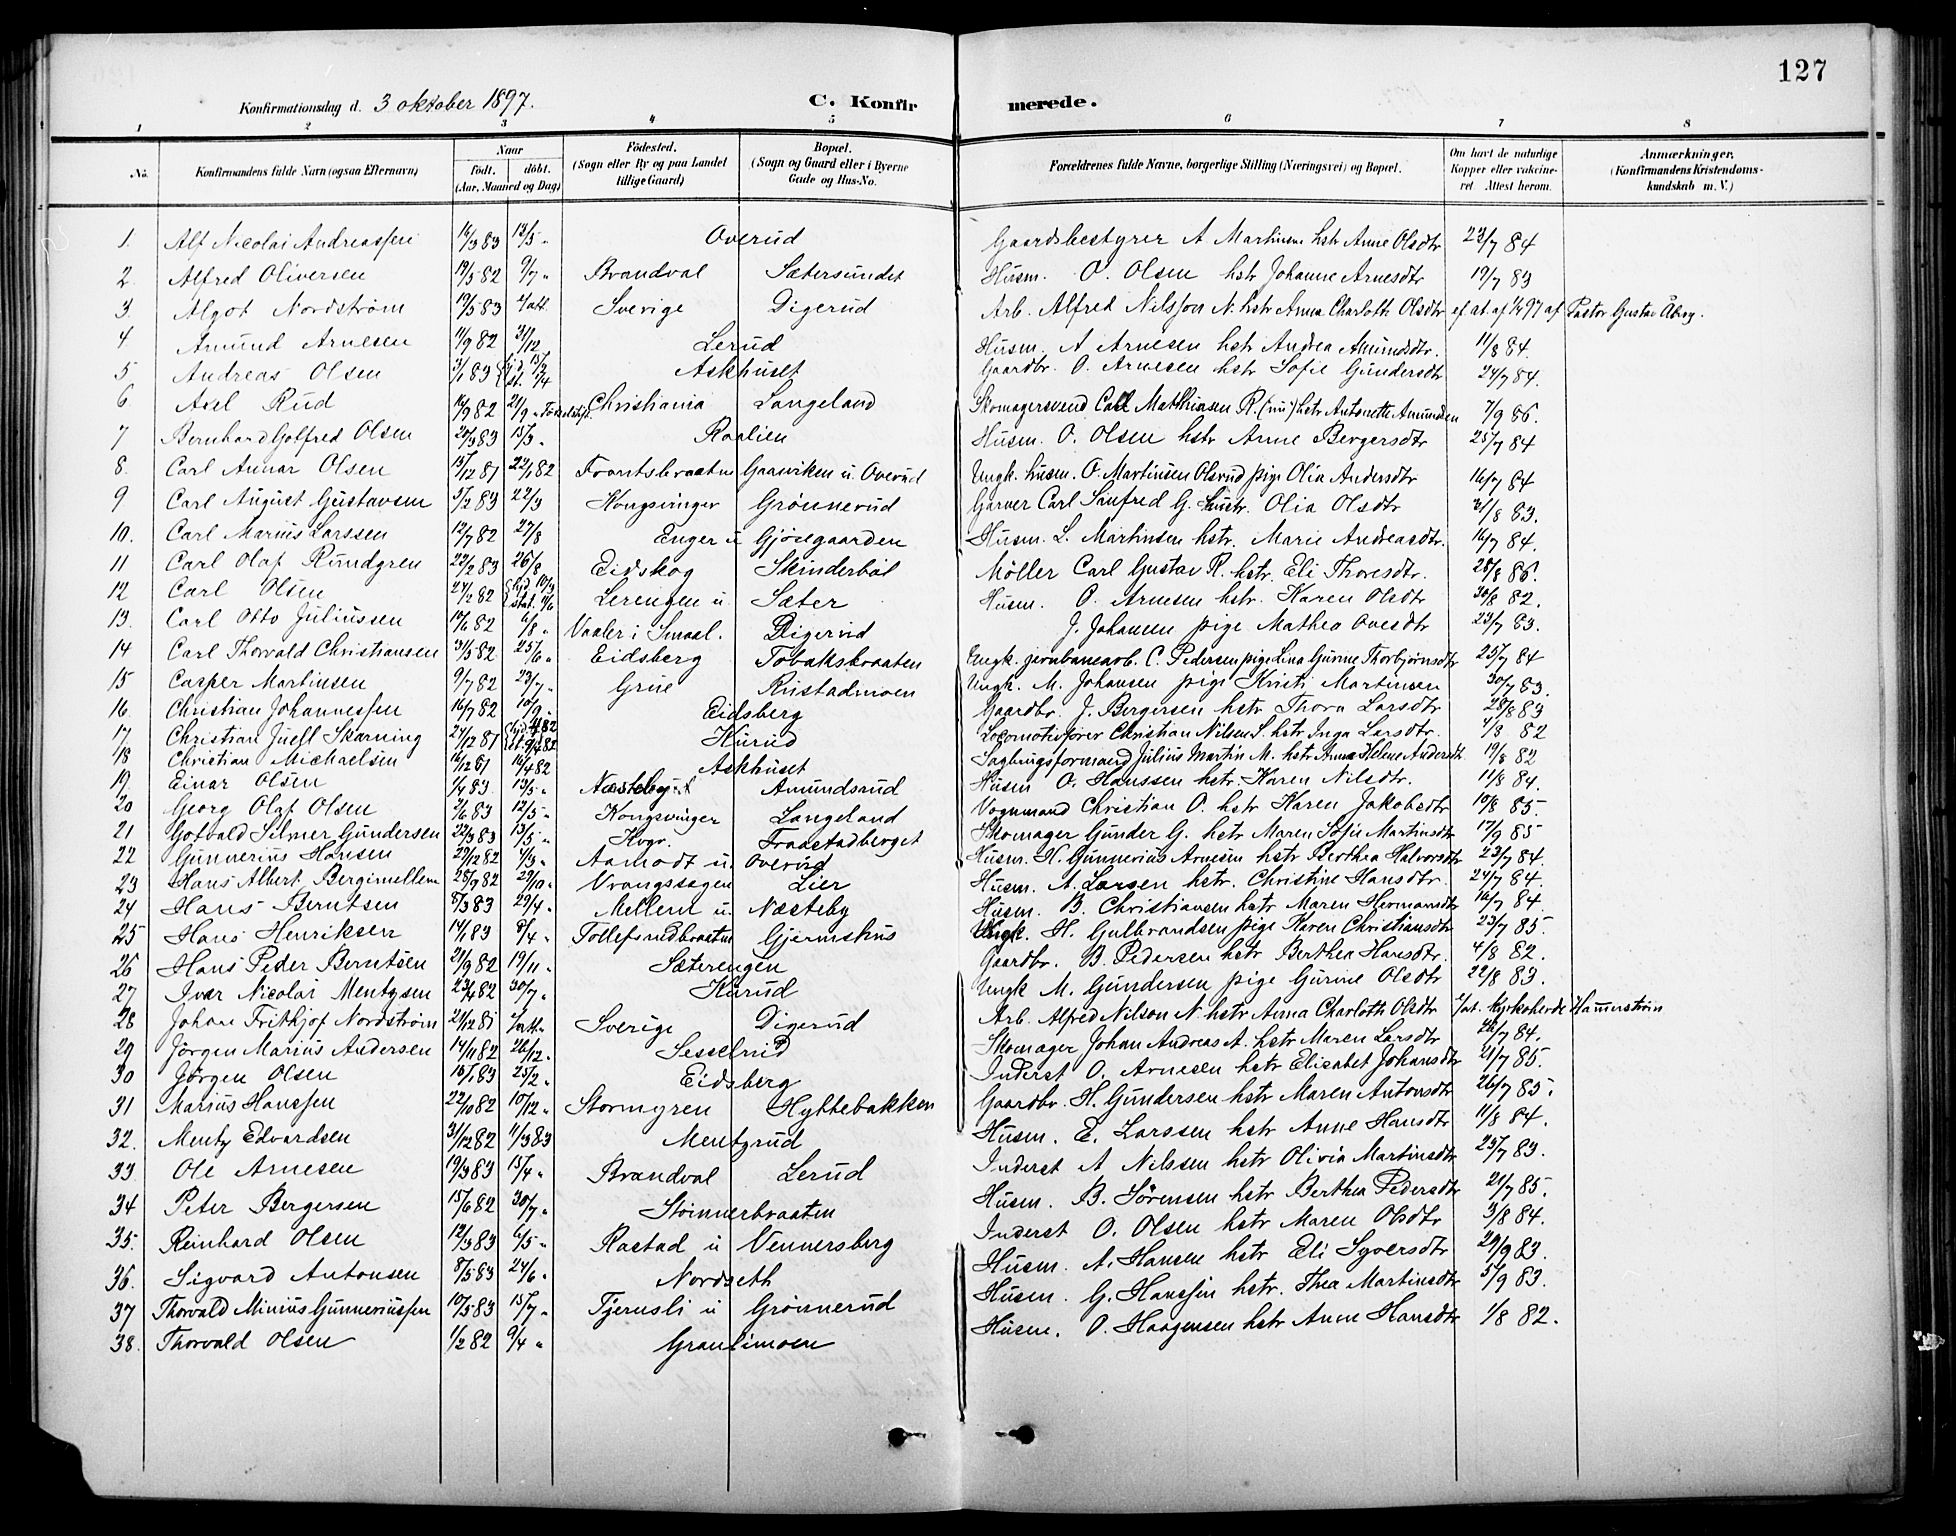 127
Konfirmationsdag d. 3 oktober 1897.
C. Konfirmerede.
1 2 3 4 5 6 7 8
No. Konfirmandens fulde Navn (ogsaa Efternavn) Naar født. døbt. (Aar, Maaned og Dag) Fødested. (Sogn eller By og paa Landet tillige Gaard) Bopæl. (Sogn og Gaard eller i Byerne Gade og Hus-No. Forældrenes fulde Navne, borgerlige Stilling (Næringsvei) og Bopæl. Om havt de naturlige Kopper eller vakcineret Attest herom. Anmærkninger. (Konfirmandens Kristendomskundskab m. V.)
1. Alf Nicolai Andreassen 14/3 83 13/5 „ Overud Gaardsbestyrer A Martinsen hstr Anne Olsdtr 23/7 84
2. Alfred Oliversen 19/5 82 9/7 „ Brandval Sætersundet Husm. O. Olsen hstr Johanne Arnesdtr 19/7 83
3. Algot Nordstrøm 19/5 83 Sverige Digerud Arb. Alfred Nilsson N. hstr Anna Charlotte Olsdtr ef at. af 1/4 97 af Pastor Gustav Åberg.
4 Amund Arnesen 11/9 82 31/12 Lerud Husm. A Arnesen hstr Andrea Amundsdtr. 11/8 84.
5 Andreas Olsen 3/1 83 Askhuset Gaardbr. O. Arnesen hstr Sofie Gundersdtr 24/7 84.
6 Axel Rud 16/9 82 21/9 „ Christiania Langeland Skomagersvend Carl Mathiasen R. hstr Antonette Amundsen 7/9 86.
7 Bernhard Golfred Olsen 20/3 83 13/5 „ Raalien Husm. O. Olsen hstr Anne Bergersdtr 25/7 84
8. Carl Annar Olsen 15/12 81 22/1 82 Frantsbraaten Gaarviken u. Overud Ungk. husm. O. Martinsen Olsrud pige Olia Andersdtr 16/7 84
9 Carl August Gustavsen 3/2 83 22/3 Kongsvinger Grønnerud Garver Carl Sanfred G. hustr. Olia Olsdtr 31/8 83.
10. Carl Marius Larssen 12/7 82 27/8 Enger u Gjøsegaarden Husm. L. Martinsen hstr. Marie Andreasdtr. 16/7 84.
11 Carl Olaf Rundgren 22/2 83 26/8 Eidskog Skinderbøl Möller Carl Gustav R. hstr. Eli Thoresdtr. 28/8 86.
12 Carl Olsen 27/2 82 Lerengen u. Sæter Husm. O. Arnesen hstr. Karen Olsdtr 30/8 82.
13. Carl Otto Juliussen 10/6 82 6/8 „ Vaaler i Smaal. Digerud J. Johansen pige Mathea Ovesdtr 23/7 83.
14 Carl Thorvald Christiansen 31/3 82 25/6 „ Eidsberg Tobaksbraaten Ungk. jernbanearb. C. Pedersen pige Lina Gurine Thorbjørnsdtr 25/7 84
15 Casper Martinsen 9/7 82 23/7 „ Grue Rustadmoen Ungk. M. Johansen pige Kristi Martinsen 30/7 83.
16. Christian Johannessen 16/7 82 10/9 „ Eidsberg Gaardbr. J. Bergersen hstr Thora Larsdtr 28/8 83
17 Christian Juell Skarning 27/12 81 Kurud Locomotivfører Christian Nilsen S. hstr Inga Larsdtr. 4/8 82
18 Christian Michaelsen 16/12 81 16/4 82 Askhuset Sagbrugsformand Julius Martin M. hstr Anna Helene Andersdtr 19/8 82
19. Einar Olsen 1/4 83 13/5 „ Næsteby Amundsrud Husm O. Hanssen hstr Karen Nilsdtr. 11/8 84.
20 Georg Olaf Olsen 2/6 83 12/5 „ Kongsvinger Langeland Vognmand Christian O. hstr Karen Jakobsdtr 10/8 85.
21 Gotvald Selmer Gundersen 22/3 83 13/5 „ Kvgr. Fraastadberget Skomager Gunder G. hstr Maren Sofie Martinsdtr 17/9 85
22 Gunnerius Hansen 29/12 82 4/3 „ Aamodt u. Overud Husm. H. Gunnerius Arnesen hstr Berthea Halvorsdtr 23/7 84.
23 Hans Albert Bergimellem 28/9 82 29/10 „ Vrangssagen Lier Husm. A. Larsen hstr. Christine Hansdtr. 24/7 84.
24 Hans Berntsen 8/3 83 29/4 „ Mellem u. Næsteby Husm. B. Christiansen hstr Maren Hermansdtr 16/7 84.
25 Hans Henriksen 14/1 83 8/4 „ Tollefsrudbraaten Gjermshus Ungk. H. Gulbrandsen pige Karen Christiansdtr 23/7 85.
26 Hans Peder Berntsen 21/9 82 19/11 „ Sæterengen Gaardbr. B. Pedersen hstr Berthea Hansdtr. 4/8 82.
27 Ivar Nicolai Mentzsen 23/4 82 30/7 „ Kurud Ungk M. Gundersen pige Gurine Olsdtr 22/8 83.
28 Johan Frithjof Nordstrøm 21/12 81 Sverige Digerud Arb. Alfred Nilson N. hstr Anna Charlotte Olsdtr Kyrkoherde Hammerström
29 Jørgen Marius Andersen 14/11 82 26/12 „ Sesselrud Skomager Johan Andreas A. hstr Maren Larsdtr 28/7 84.
30 Jørgen Olsen 16/1 83 25/2 „ Eidsberg Inderst O. Arnesen hstr Elisabet Johansdtr 21/7 85.
31 Marius Hanssen 22/10 82 10/12 „ Stormyren Hyttebakken Gaardbr. H. Gundersen hstr Maren Antonsdtr 26/7 85.
32. Mentz Edvardsen 31/12 82 11/3 83 Mentzrud Husm. E. Larssen hstr Anne Hansdtr 11/8 84.
33 Ole Arnesen 19/3 83 15/4 „ Brandval Lerud Inderst A Nilssen hstr Olivia Martinsdtr 23/7 83.
34 Peter Bergersen 15/6 82 30/7 „ Stømnerbraaten Husm. B. Sörensen hstr Berthea Pedersdtr 21/7 85.
35. Reinhard Olsen 12/3 83 6/5 „ Rastad u Vennersberg Inderst O. Olsen hstr Maren Olsdtr 3/8 84.
36. Sigvard Antonsen 8/5 83 24/6 „ Nordseth Husm. A. Hansen hstr Eli Syversdtr 29/9 83.
37 Thorvald Minius Gunneriussen 10/5 83 15/7 „ Tjernsli u Grønnerud Husm. G. Hanssen hstr. Thea Martinsdtr 5/9 83.
38. Thorvald Olsen 1/2 82 9/4 „ Granlimoen Husm. O. Haagensen hstr Anne Hansdtr 1/8 82.